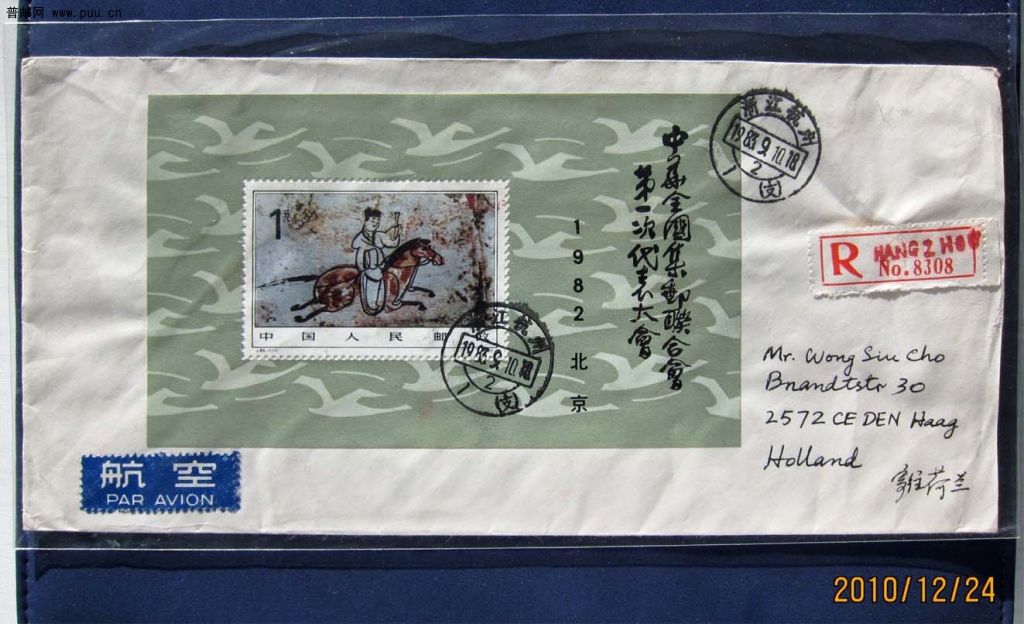 普邮网 www.puu.cn
中华全國集郵聯合會
第一次代表大會
1982北京
1元
中国人民邮政
浙江杭州
1983.9.10.18
2
(支)
浙江杭州
1983.9.10.18
2
(支)
R HANGZHOU
No.8308
Mr. Wong Siu Cho
Brandtstr 30
2572 CE DEN Haag
Holland
寄往荷兰
航空
PAR AVION
2010/12/24